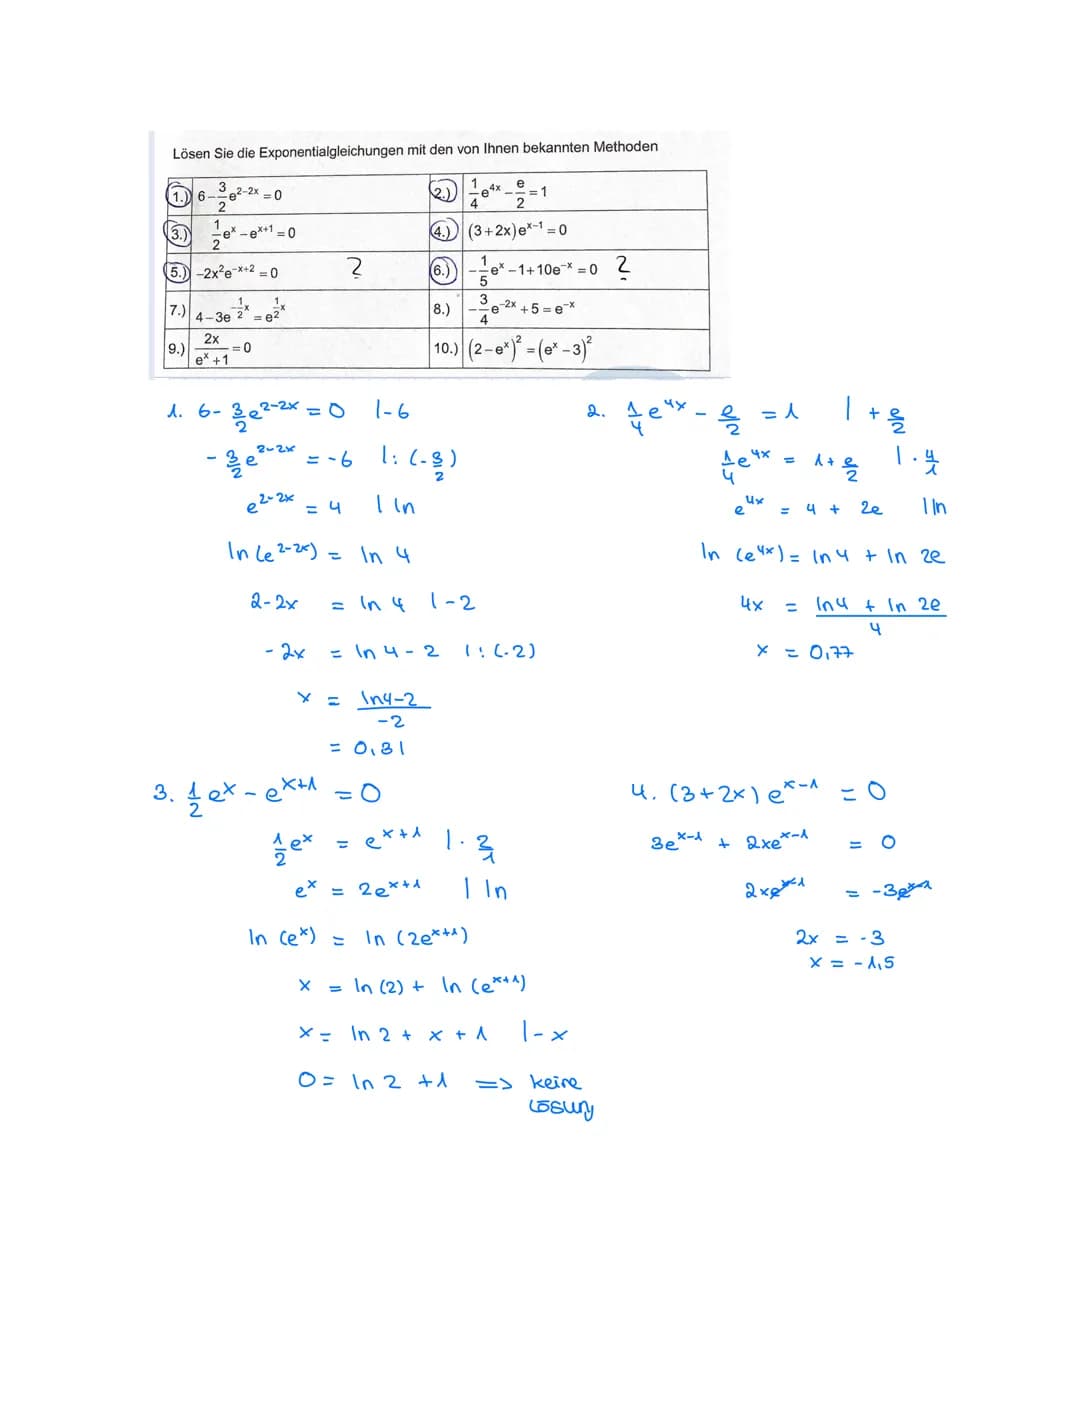 Lösen Sie die Exponentialgleichungen mit den von Ihnen bekannten Methoden
1.) 6 - 3/2 e^(2-2x) = 0
2.) 1/4 e^(4x) - e/2 = 1
3.) 1/2 e^x - e^(x+1) = 0
4.) (3+2x) e^(x-1) = 0
5.) -2x² e^(-x+2) = 0 ?
6.) -1/5 e^x - 1 + 10e^(-x) = 0 ?
7.) 4 - 3e^(-1/2 x) = e^(1/2 x)
8.) -3/4 e^(-2x) + 5 = e^(-x)
9.) 2x/(e^x + 1) = 0
10.) (2 - e^x)² = (e^x - 3)²
1. 6 - 3/2 e^(2-2x) = 0 | -6
- 3/2 e^(2-2x) = -6 | : (-3/2)
e^(2-2x) = 4 | ln
ln (e^(2-2x)) = ln 4
2-2x = ln 4 | -2
-2x = ln 4 - 2 | : (-2)
x = (ln4-2)/-2
= 0,31
2. 1/4 e^(4x) - e/2 = 1 | + e/2
1/4 e^(4x) = 1 + e/2 | · 4/1
e^(4x) = 4 + 2e | ln
ln (e^(4x)) = ln 4 + ln 2e
4x = (ln4 + ln 2e)/4
x = 0,77
3. 1/2 e^x - e^(x+1) = 0
1/2 e^x = e^(x+1) | · 2/1
e^x = 2e^(x+1) | ln
ln (e^x) = ln (2e^(x+1))
x = ln (2) + ln (e^(x+1))
x = ln 2 + x + 1 | -x
0 = ln 2 + 1 => keine
Lösung
4. (3+2x) e^(x-1) = 0
3e^(x-1) + 2xe^(x-1) = 0
2xe^(x-1) = -3e^(x-1)
2x = -3
x = -1,5